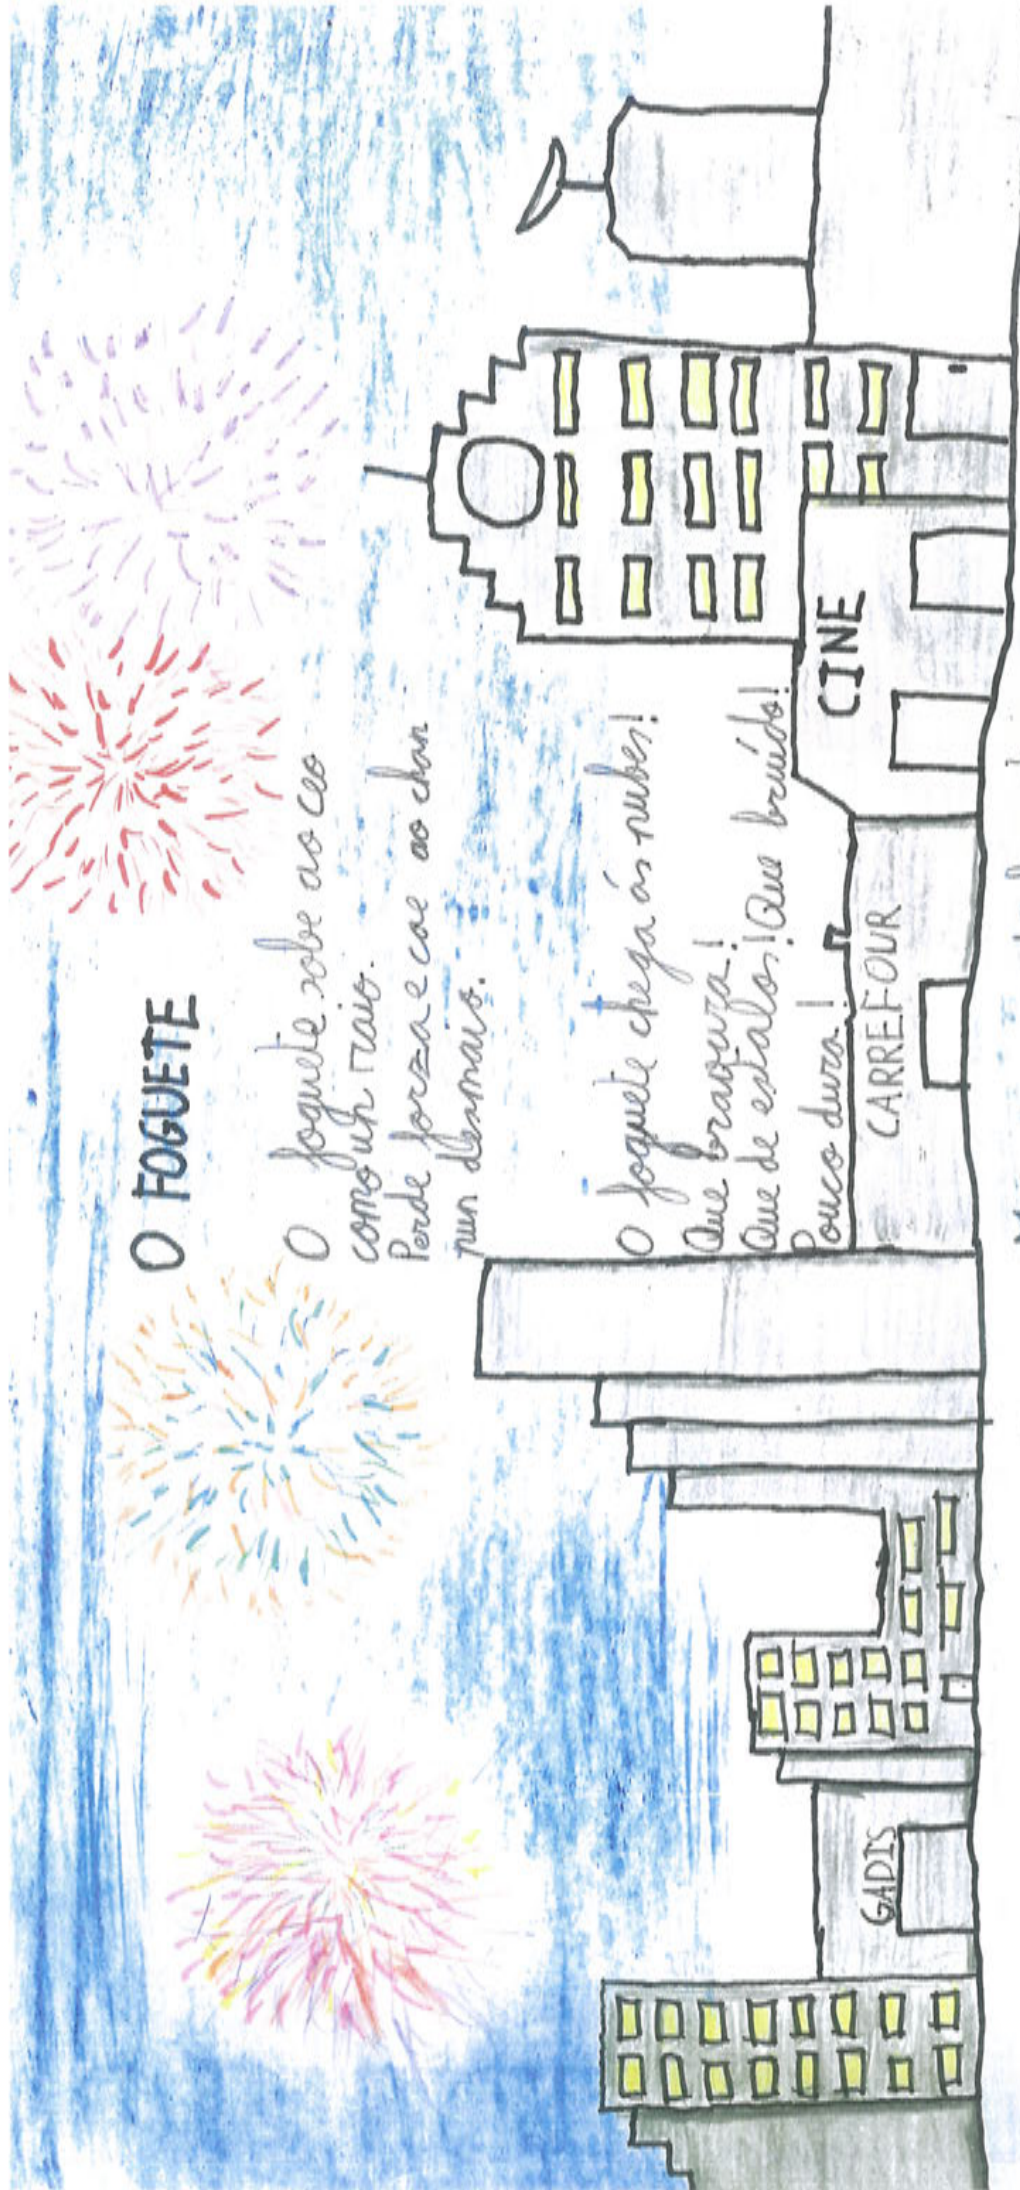 O FOGUETE
O foguete sobe ao ceo
como un raio.
Perde forza e cae ao chan
nun desmaio.
O foguete chega ás nubes!
Que bravura!
Que de estalos! Que bruído!
Pouco dura!
GADIS
CARREFOUR
CINE